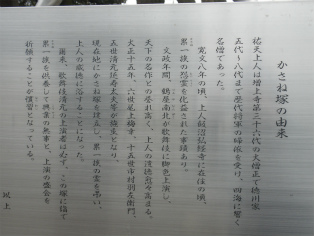 かさね塚の由来
祐天上人は増上寺第三十六代の大僧正で徳川家
五代〜八代まで歴代将軍の帰依を受け、四海に響く
名僧であった。
寛文八年の頃、上人飯沼弘経寺に在住の頃、
累一族の怨霊を化益された事蹟あり。
文政年間、鶴屋南北が歌舞伎に脚色上演し、
天下の名作との誉れ高く、上人の遺徳愈々高まる。
大正十五年、六世尾上梅幸、十五世市村羽左衛門、
五世清元延寿太夫等が施主となり、
現在地にかさね塚を建立し、累一族の霊を弔い、
上人の威徳に浴することになった。
爾来、歌舞伎清元の上演者は必ず、この塚に詣で
累一族を供養して興業の無事と、上演の盛会を
祈願することが慣習となっている。
以上